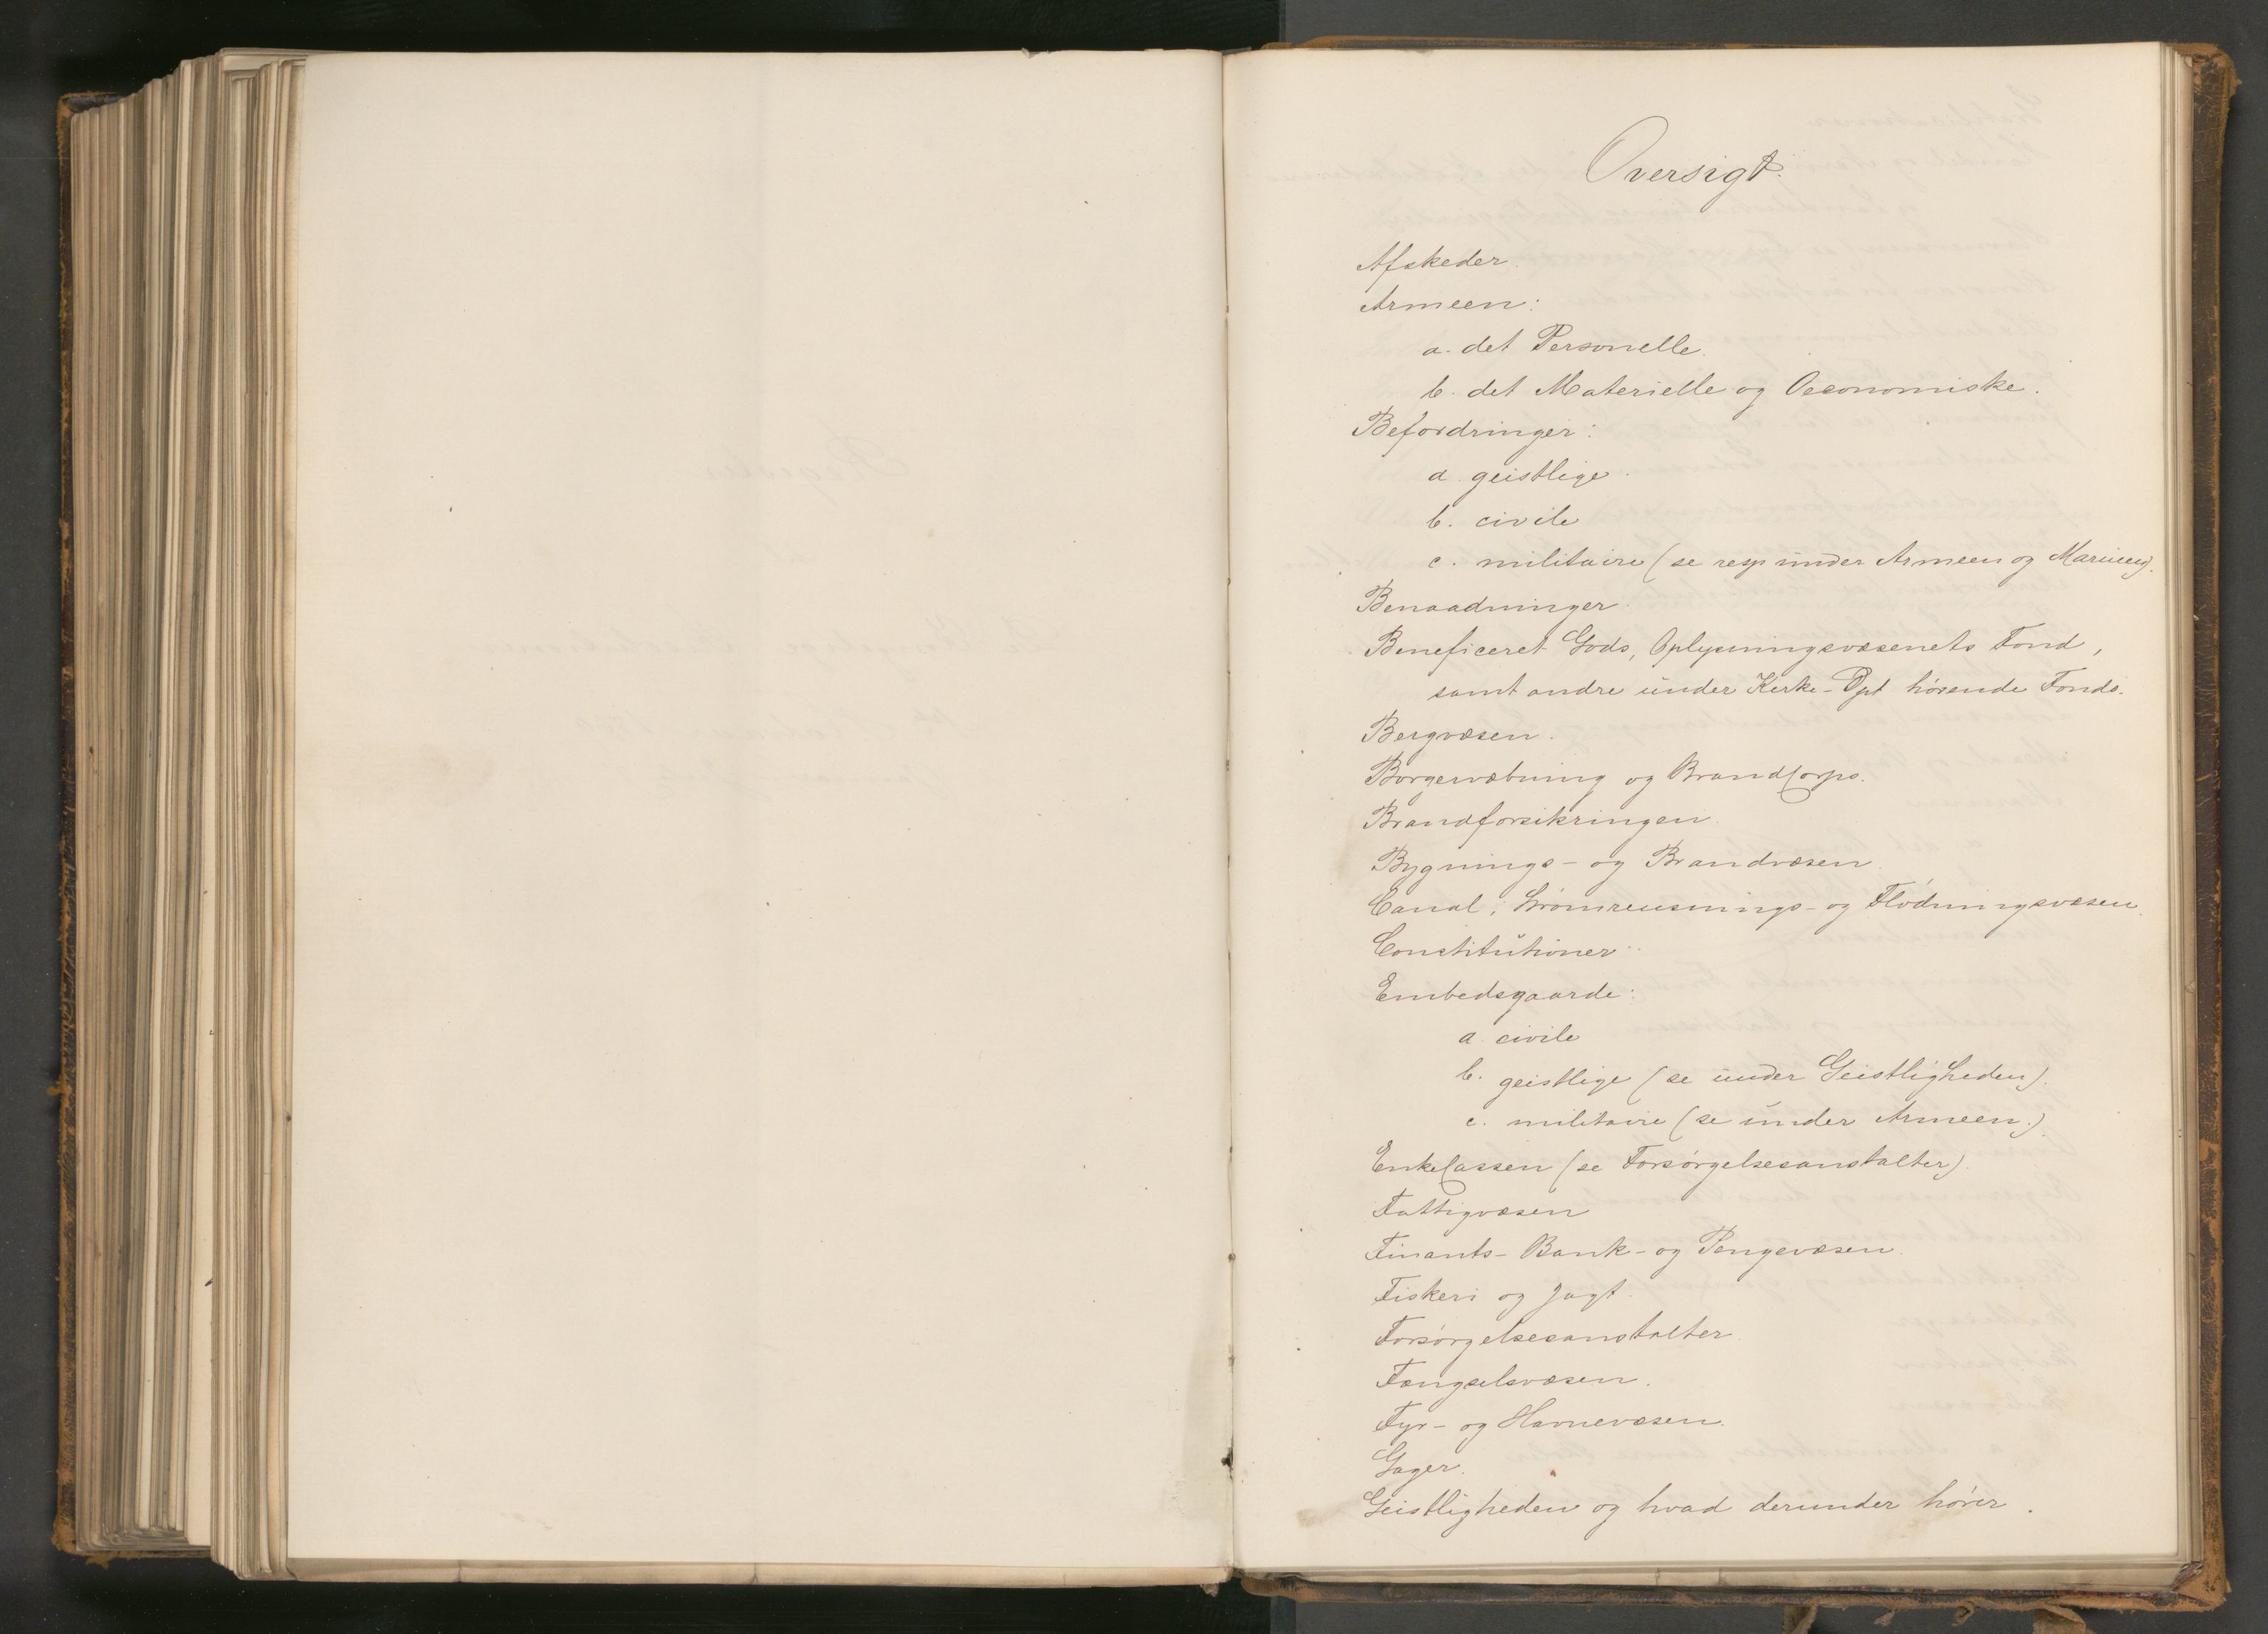 Oversigt.
Afskeder.
Armeen:
a. det Personelle.
b. det Materielle og Oeconomiske.
Befordringer:
a. geistlige.
b. civile
c. militaire (se resp under Armeen og Marinen).
Benaadninger.
Beneficeret Gods, Oplysningsvæsenets Fond,
samt andre under Kirke-Dpt hørende Fonds.
Bergvæsen.
Borgervæbning og BrandCorps.
Brandforsikringen.
Bygnings- og Brandvæsen.
Canal, Strømrensnings- og Flødningsvæsen.
Constitutioner.
Embedsgaarde:
a. civile
b. geistlige (se under Geistligheden).
c. militaire (se under Armeen.)
EnkeCassen (se Forsørgelsesanstalter).
Fattigvæsen
Finants- Bank- og Pengevæsen.
Fiskeri og Jagt.
Forsørgelsesanstalter.
Fængselsvæsen.
Fyr- og Havnevæsen.
Gager.
Geistligheden og hvad derunder hører.